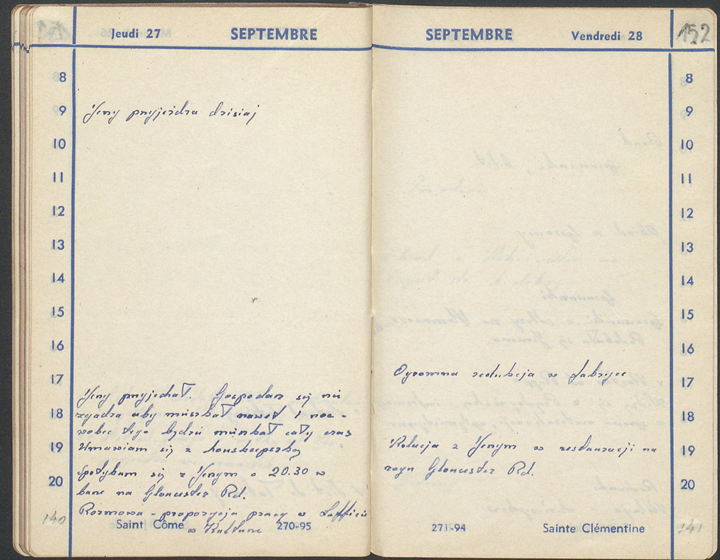 Jeudi 27 SEPTEMBRE
8
9
Jerzy przyjeżdża dzisiaj
10
11
12
13
14
15
16
17
Jerzy przyjechał. Gospodarz się nie
18
zgadza aby mieszkał nawet 1 noc -
wobec tego będzie mieszkał cały czas
19
Umawiam się z houskeeperką
Spotykam się z Jerzym o 20.30 w
20
barze na Gloucester Rd.
Rozmowa - propozycja pracy w
w Kulturze
140
Saint Côme 270-95
SEPTEMBRE Vendredi 28
152
8
9
10
11
12
13
14
15
16
Ogromna redukcja w fabryce
17
18
19
Kolacja z Jerzym w restauracji na
rogu Gloucester Rd.
20
271-94 Sainte Clémentine
141